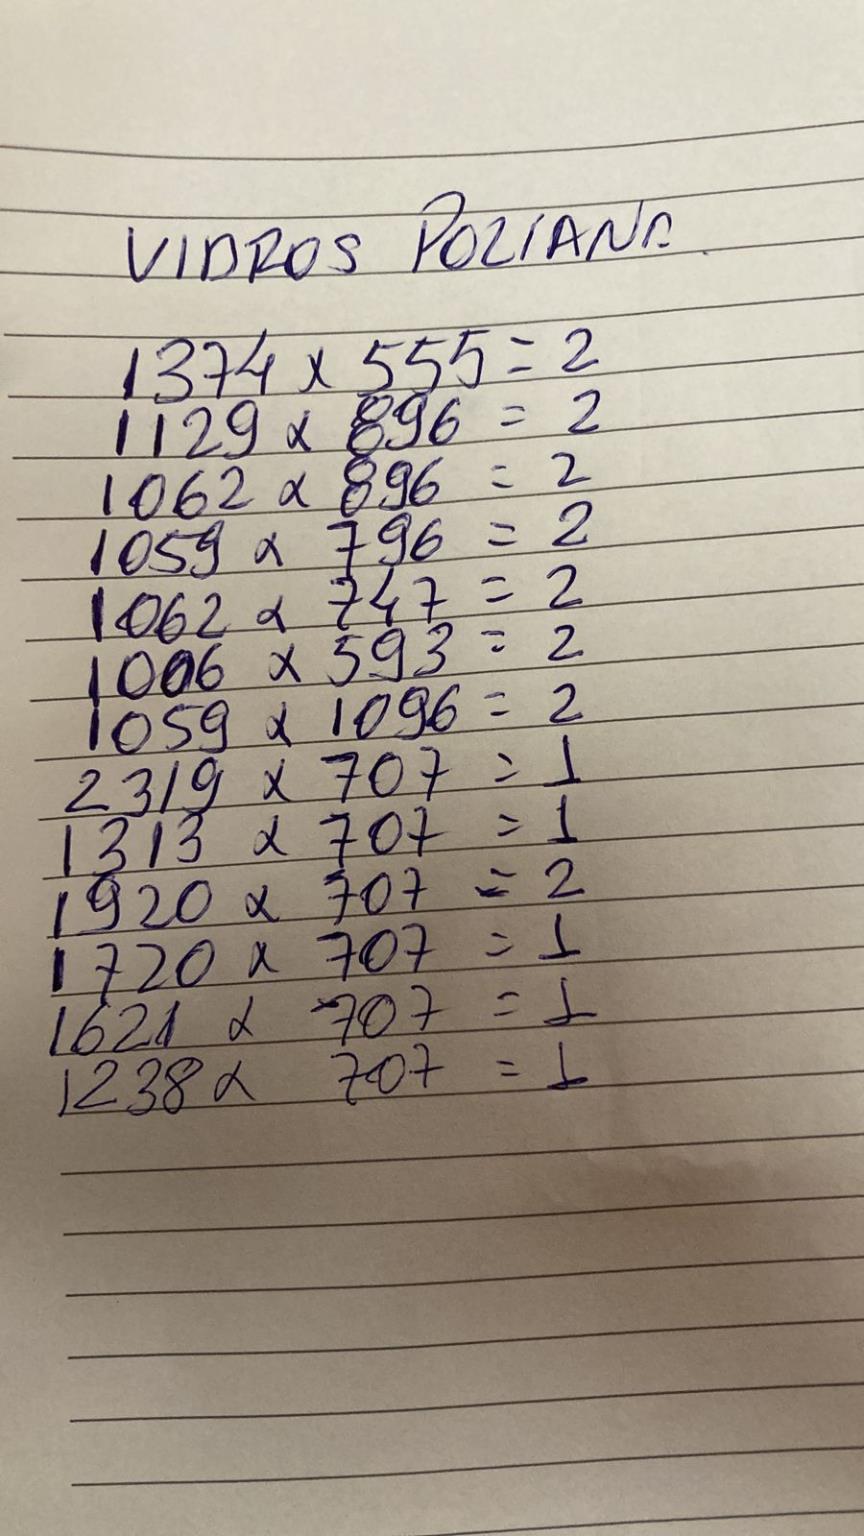 VIDROS POLIANA.
1374 x 555 = 2
1129 x 896 = 2
1062 x 896 = 2
1059 x 796 = 2
1062 x 747 = 2
1006 x 593 = 2
1059 x 1096 = 2
2319 x 707 = 1
1313 x 707 = 1
1920 x 707 = 2
1720 x 707 = 1
1621 x 707 = 1
1238 x 707 = 1